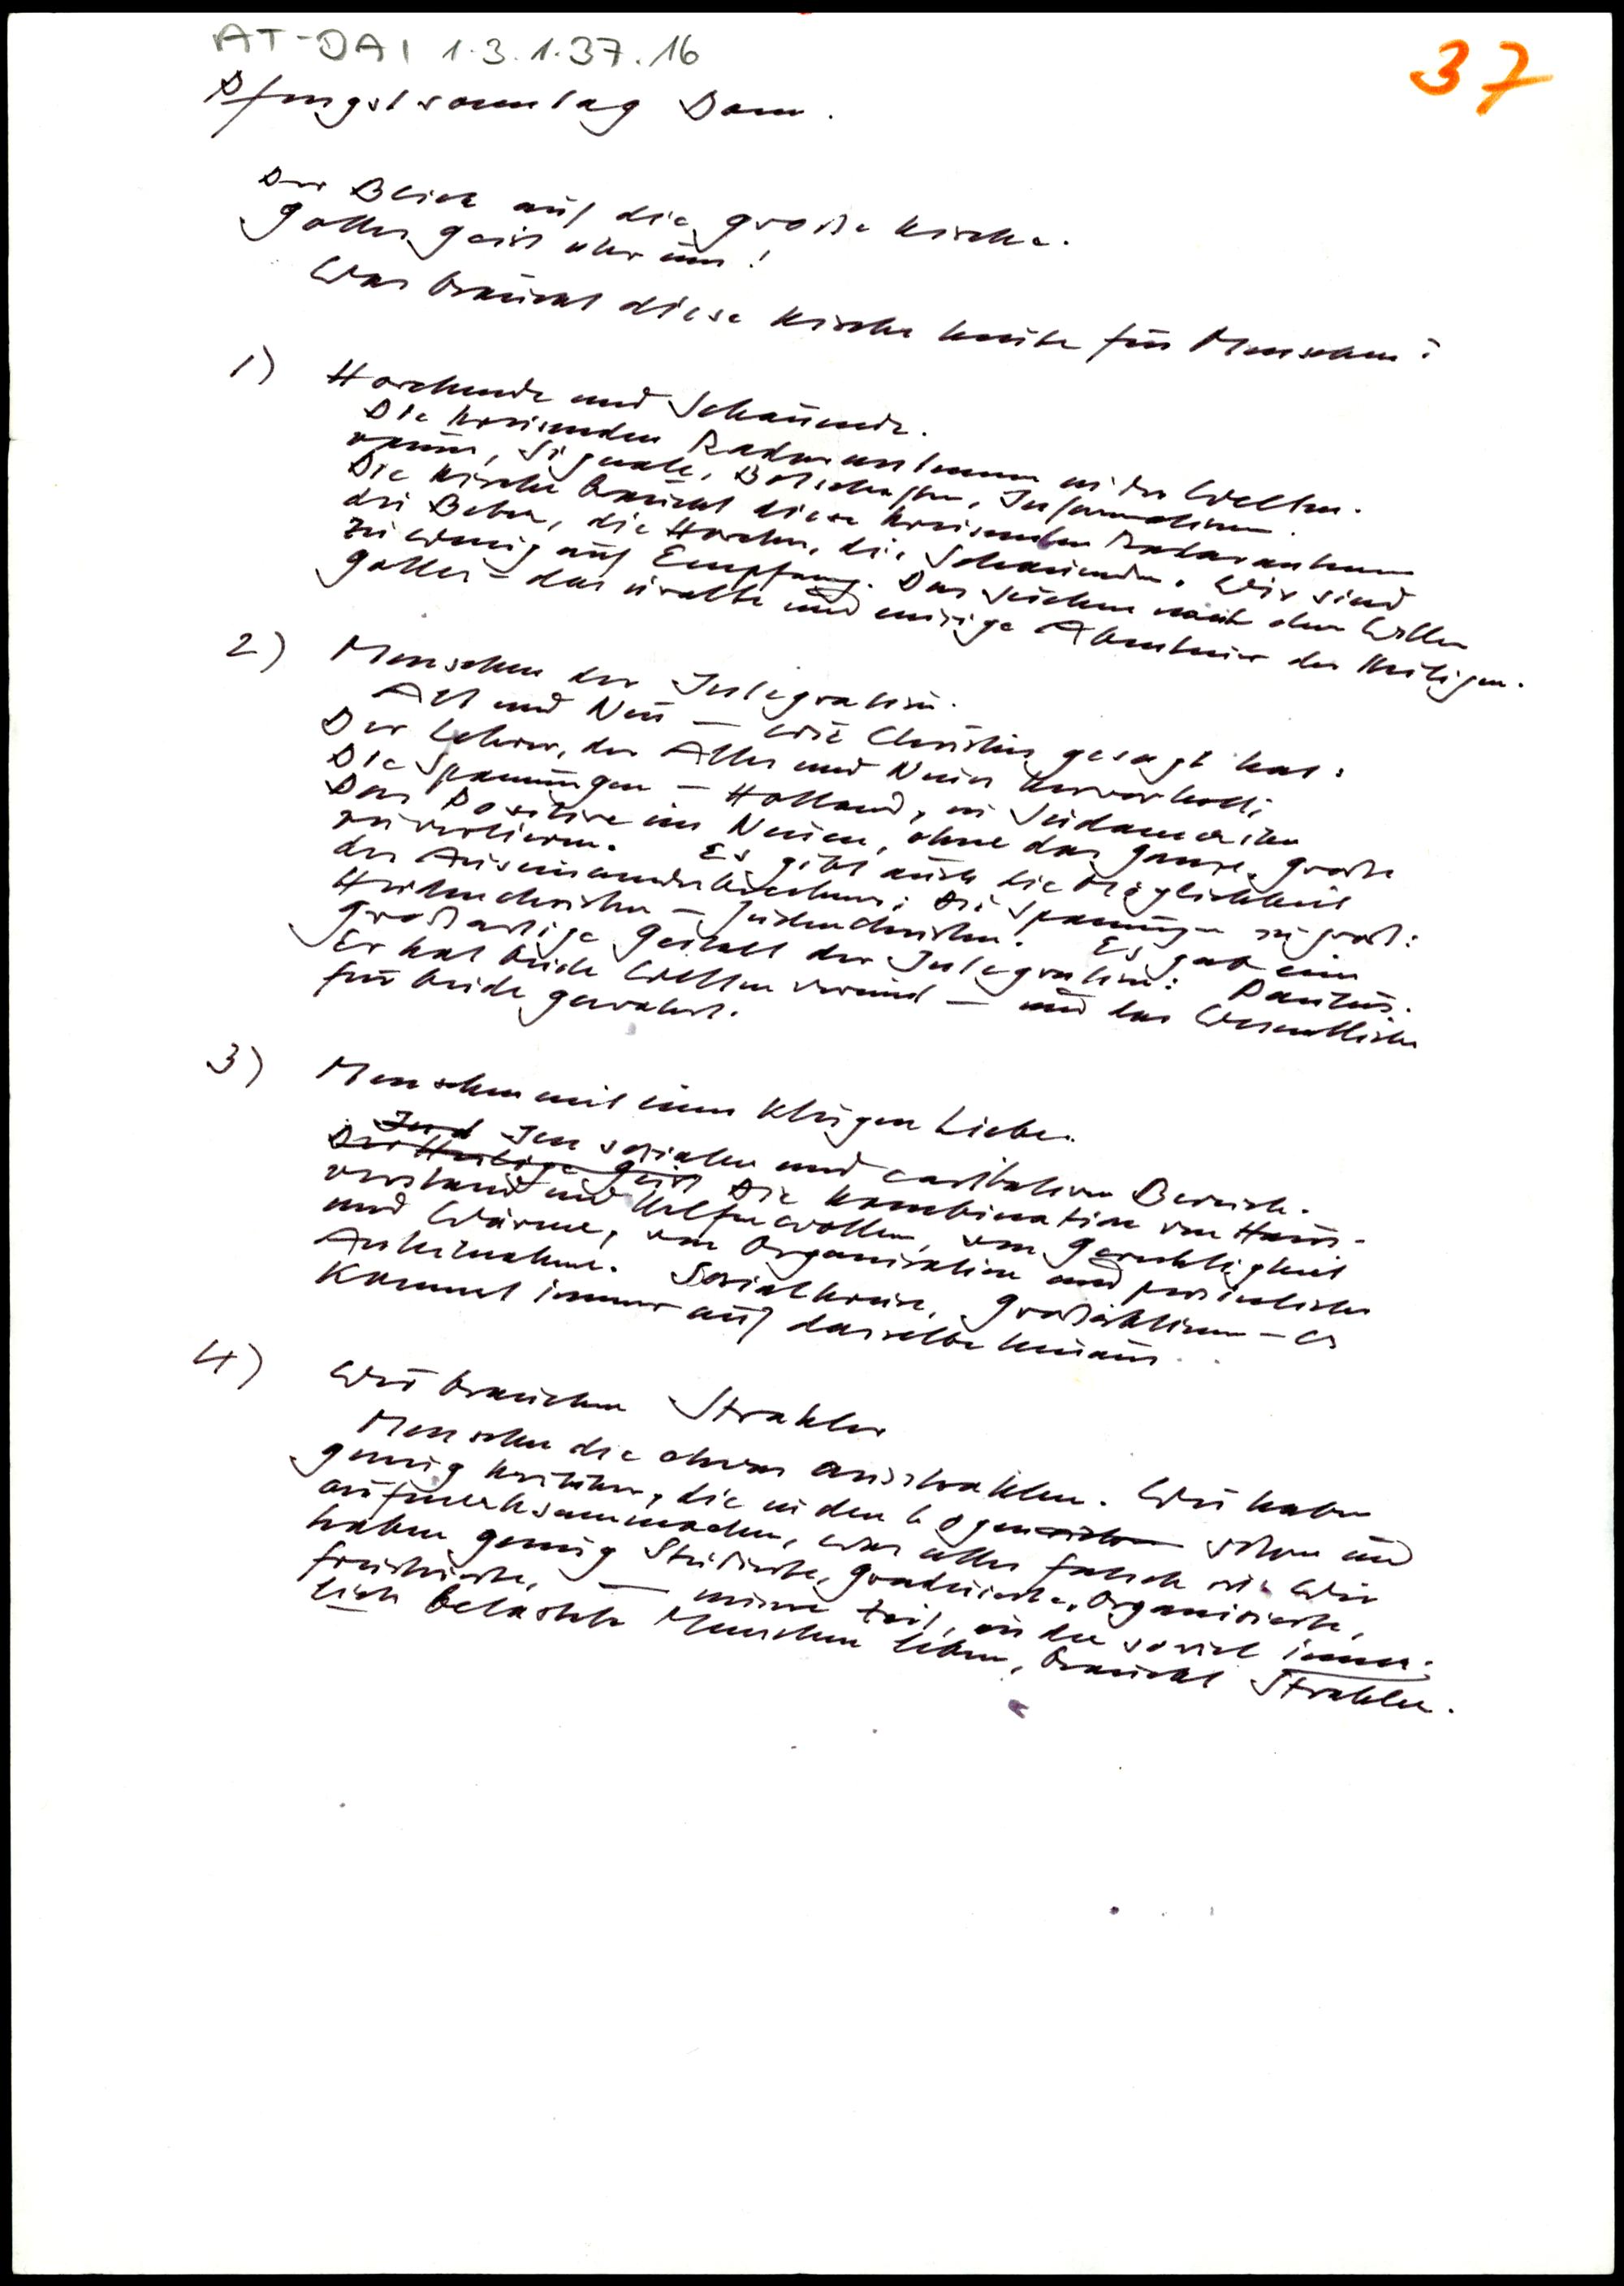 AT-DAI 1.3.1.37.16
37
Pfingstsonntag Dom.
Der Blick auf die große Kirche.
Gottes Geist über uns!
Was braucht diese Kirche heute für Menschen?
1) Horchende und Schauende.
Die kreisenden Radarantennen in den Welten-
raum, Signale, Botschaften, Informationen.
Die Kirche braucht diese kreisenden Radarantennen
die Beter, die Horcher, die Schauenden. Wir sind
zu wenig auf Empfang. Das Suchen nach dem Willen
Gottes - das uralte und einzige Abenteuer der Heiligen.
2) Menschen der Integration.
Alt und Neu - wie Christus gesagt hat:
Der Lehrer, der Altes und Neues hervorholt.
Die Spannungen - Holland, in Südamerika
Das Positive im Neuen, ohne das ganze, große
zu verlieren. Es gibt auch die Möglichkeit
des Auseinanderbrechens: Die Spannung zu groß:
Heidenchristen - Judenchristen. Es gab eine
großartige Gestalt der Integration: Paulus.
Er hat beide Welten vereint - und das Wesentliche
für beide gewahrt.
3) Menschen mit einer klugen Liebe.
Im sozialen und caritativen Bereich.
Der Heilige Geist Die Kombination von Haus-
verstand und Helfenwollen, von Gerechtigkeit
und Wärme, von Organisation und persönlicher
Anteilnahme. Sozialkreise, Großaktionen - es
kommt immer auf dasselbe hinaus..
4) Wir brauchen Strahler
Menschen die etwas ausstrahlen. Wir haben
genug Kritiker, die in den Logen sitzen und
aufmerksammachen, was alles falsch ist. Wir
haben genug Studierte, Graduierte, Organisierte,
Frustrierte, - unsere Zeit, in der soviel inner-
lich belastete Menschen leben, braucht Strahler.